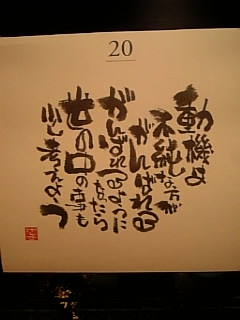 20
動機は
不純な方が
がんばれる
がんばれるようになったら
世の中の事も
少し考えよう